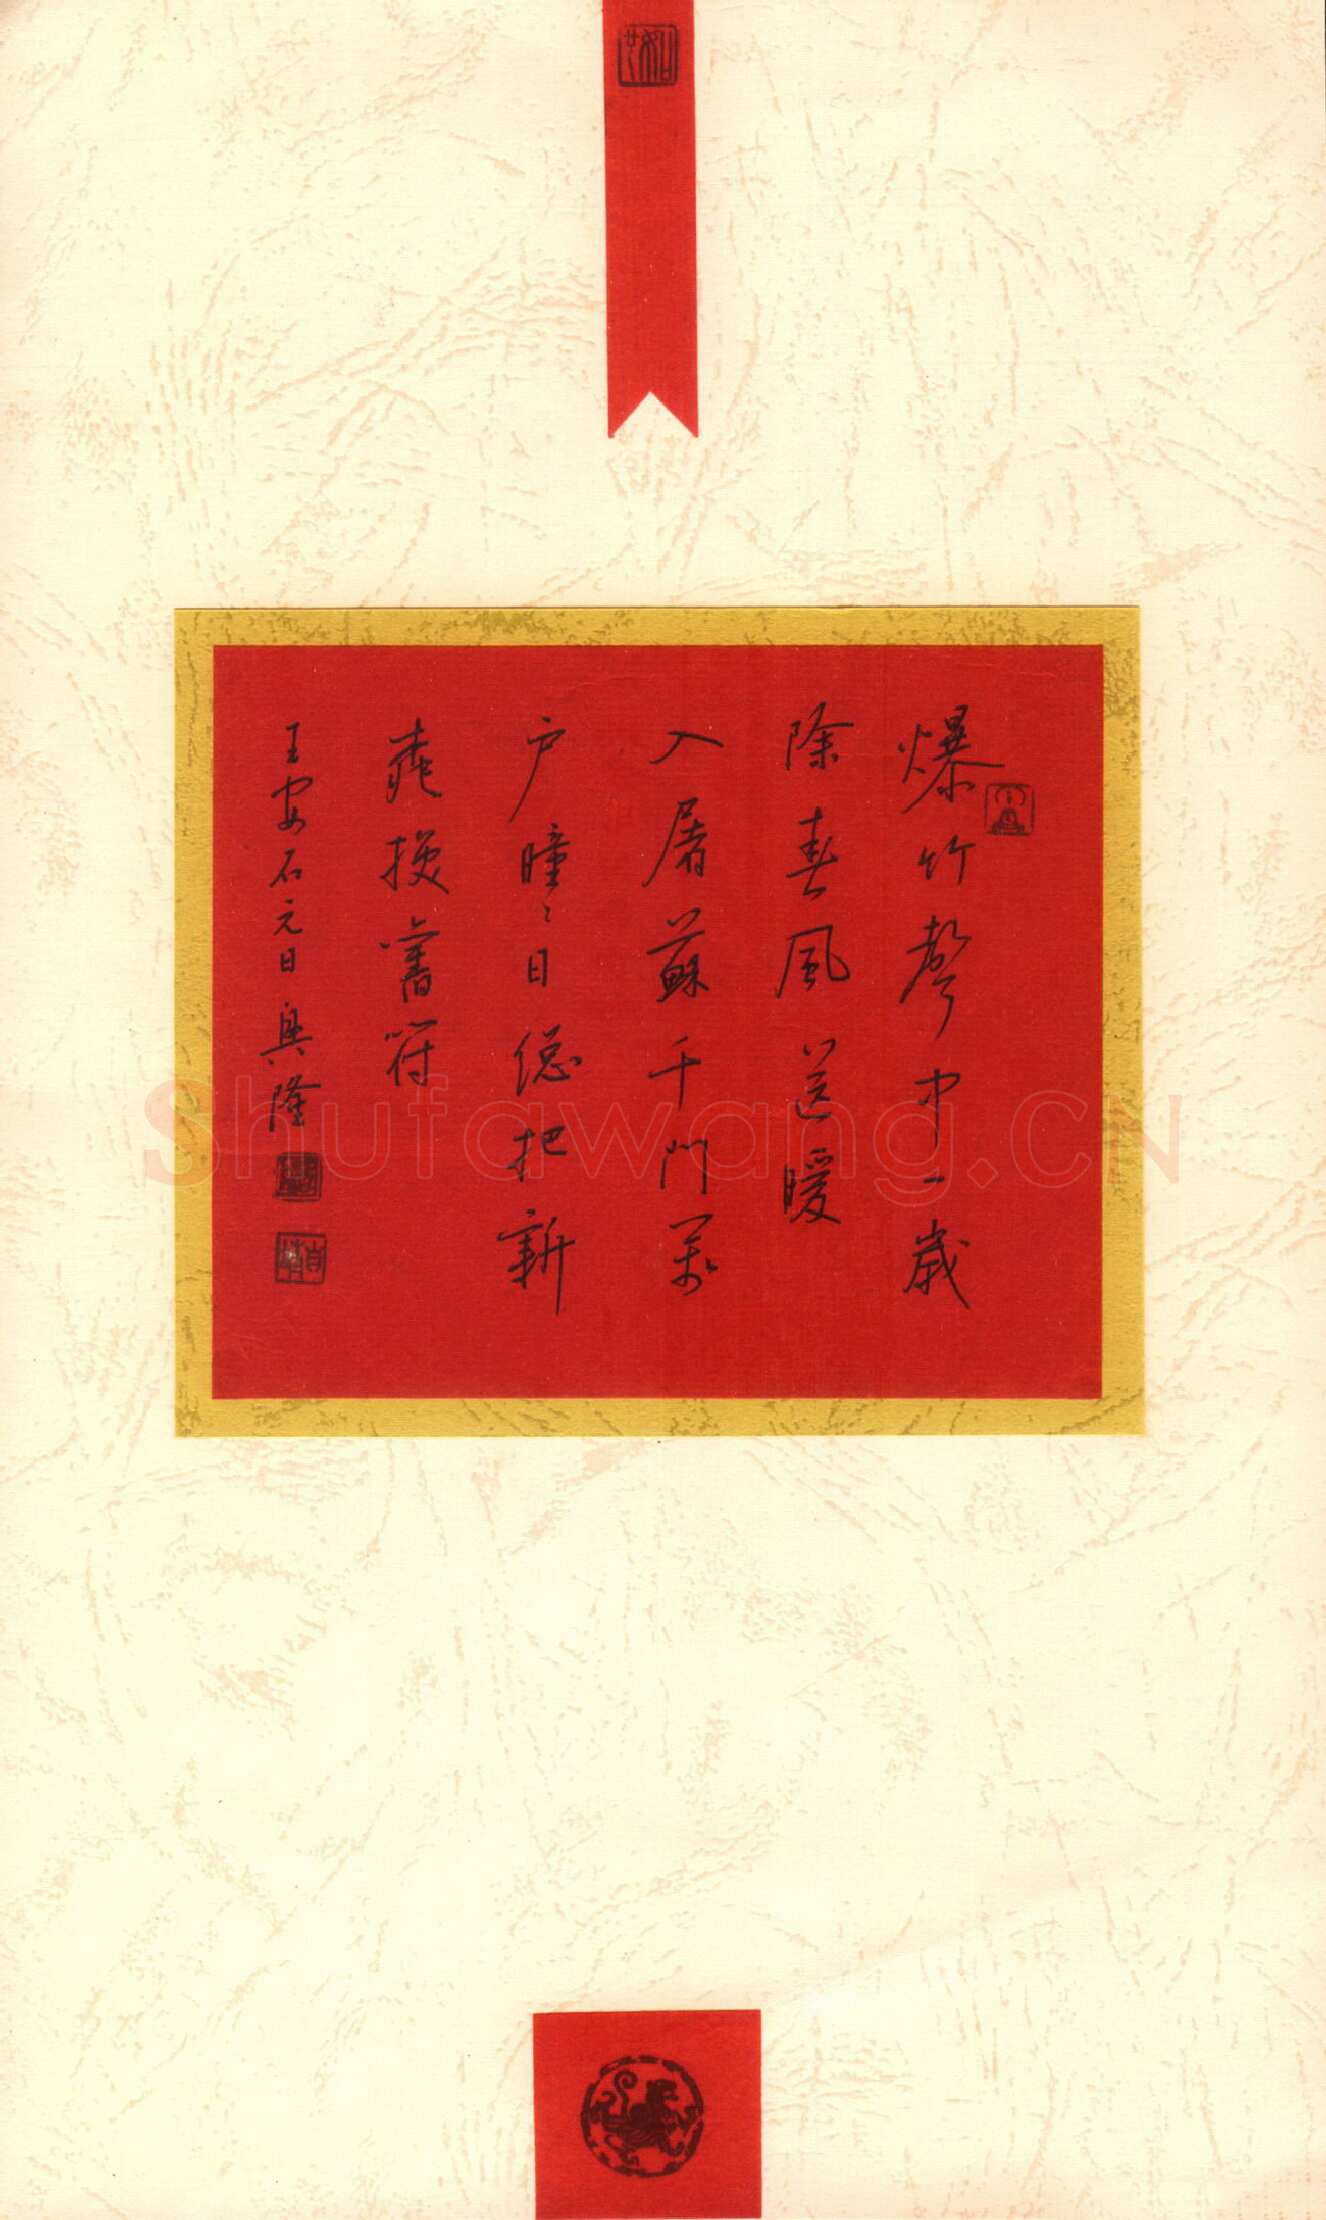 爆竹聲中一歲
除春風送暖
入屠蘇千門萬
户曈々日總把新
桃換舊符
王安石元日興隆
Shufawang.CN